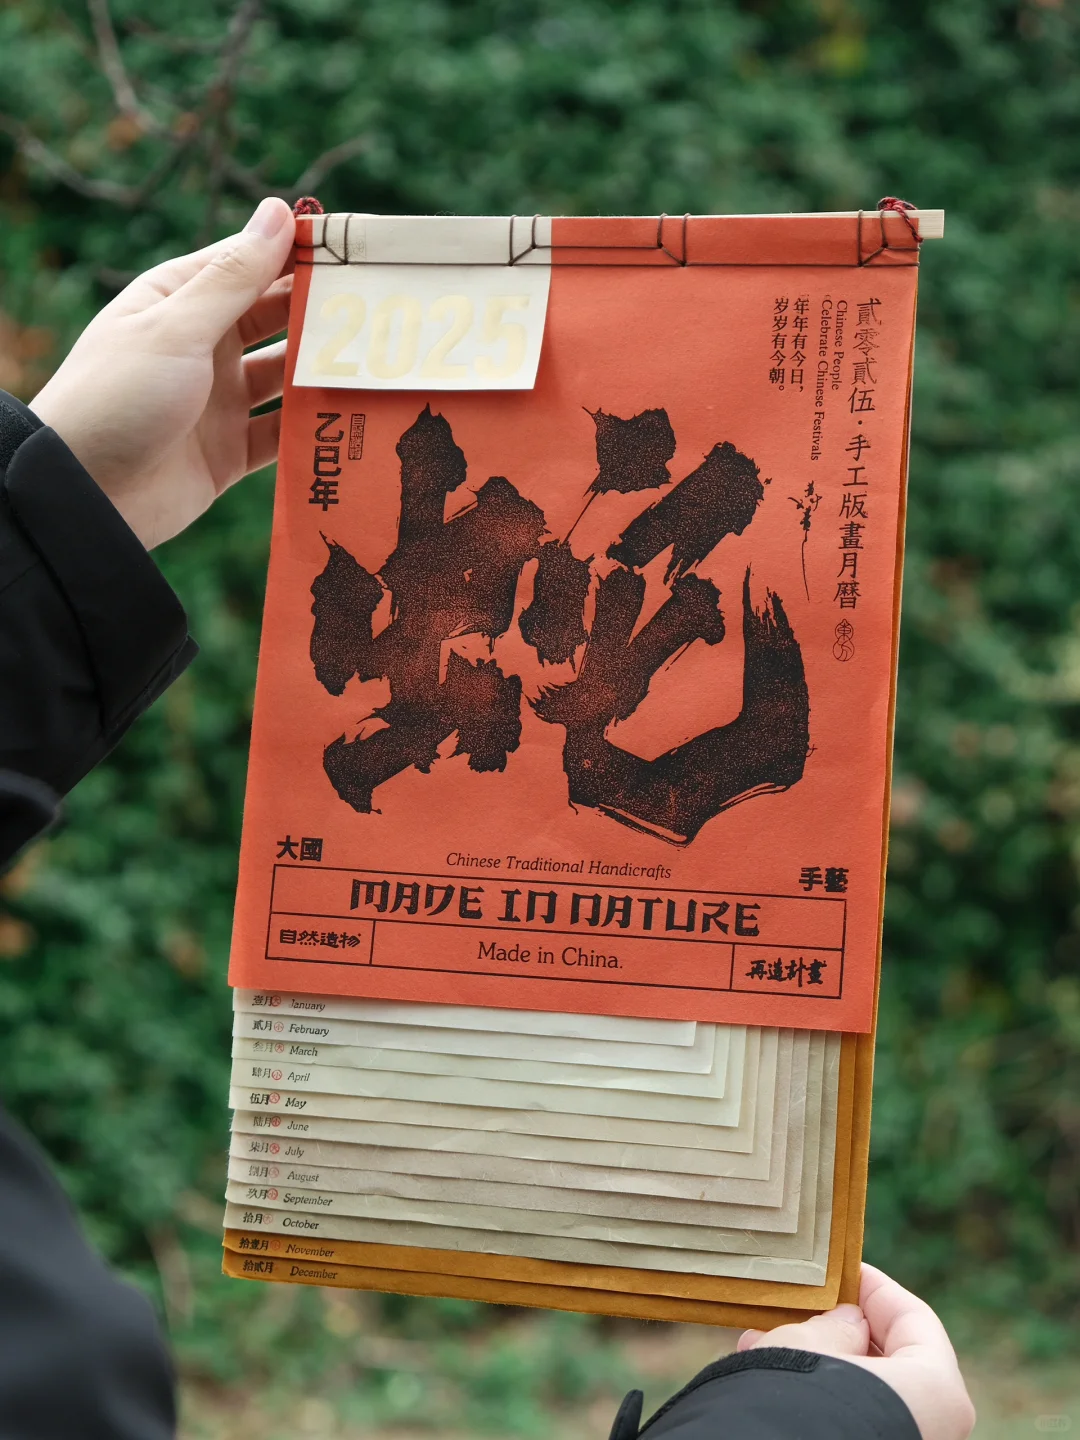 2025
貳零貳伍·手工版畫月曆
Chinese People
Celebrate Chinese Festivals
年年有今日，
岁岁有今朝。
乙巳年
蛇
大國
手藝
Chinese Traditional Handicrafts
MADE IN NATURE
自然造物
Made in China.
再造計畫
壹月 January
貳月 小 February
叁月 大 March
肆月 小 April
伍月 May
陆月 June
柒月 July
捌月 August
玖月 September
拾月 October
拾壹月 November
拾贰月 December